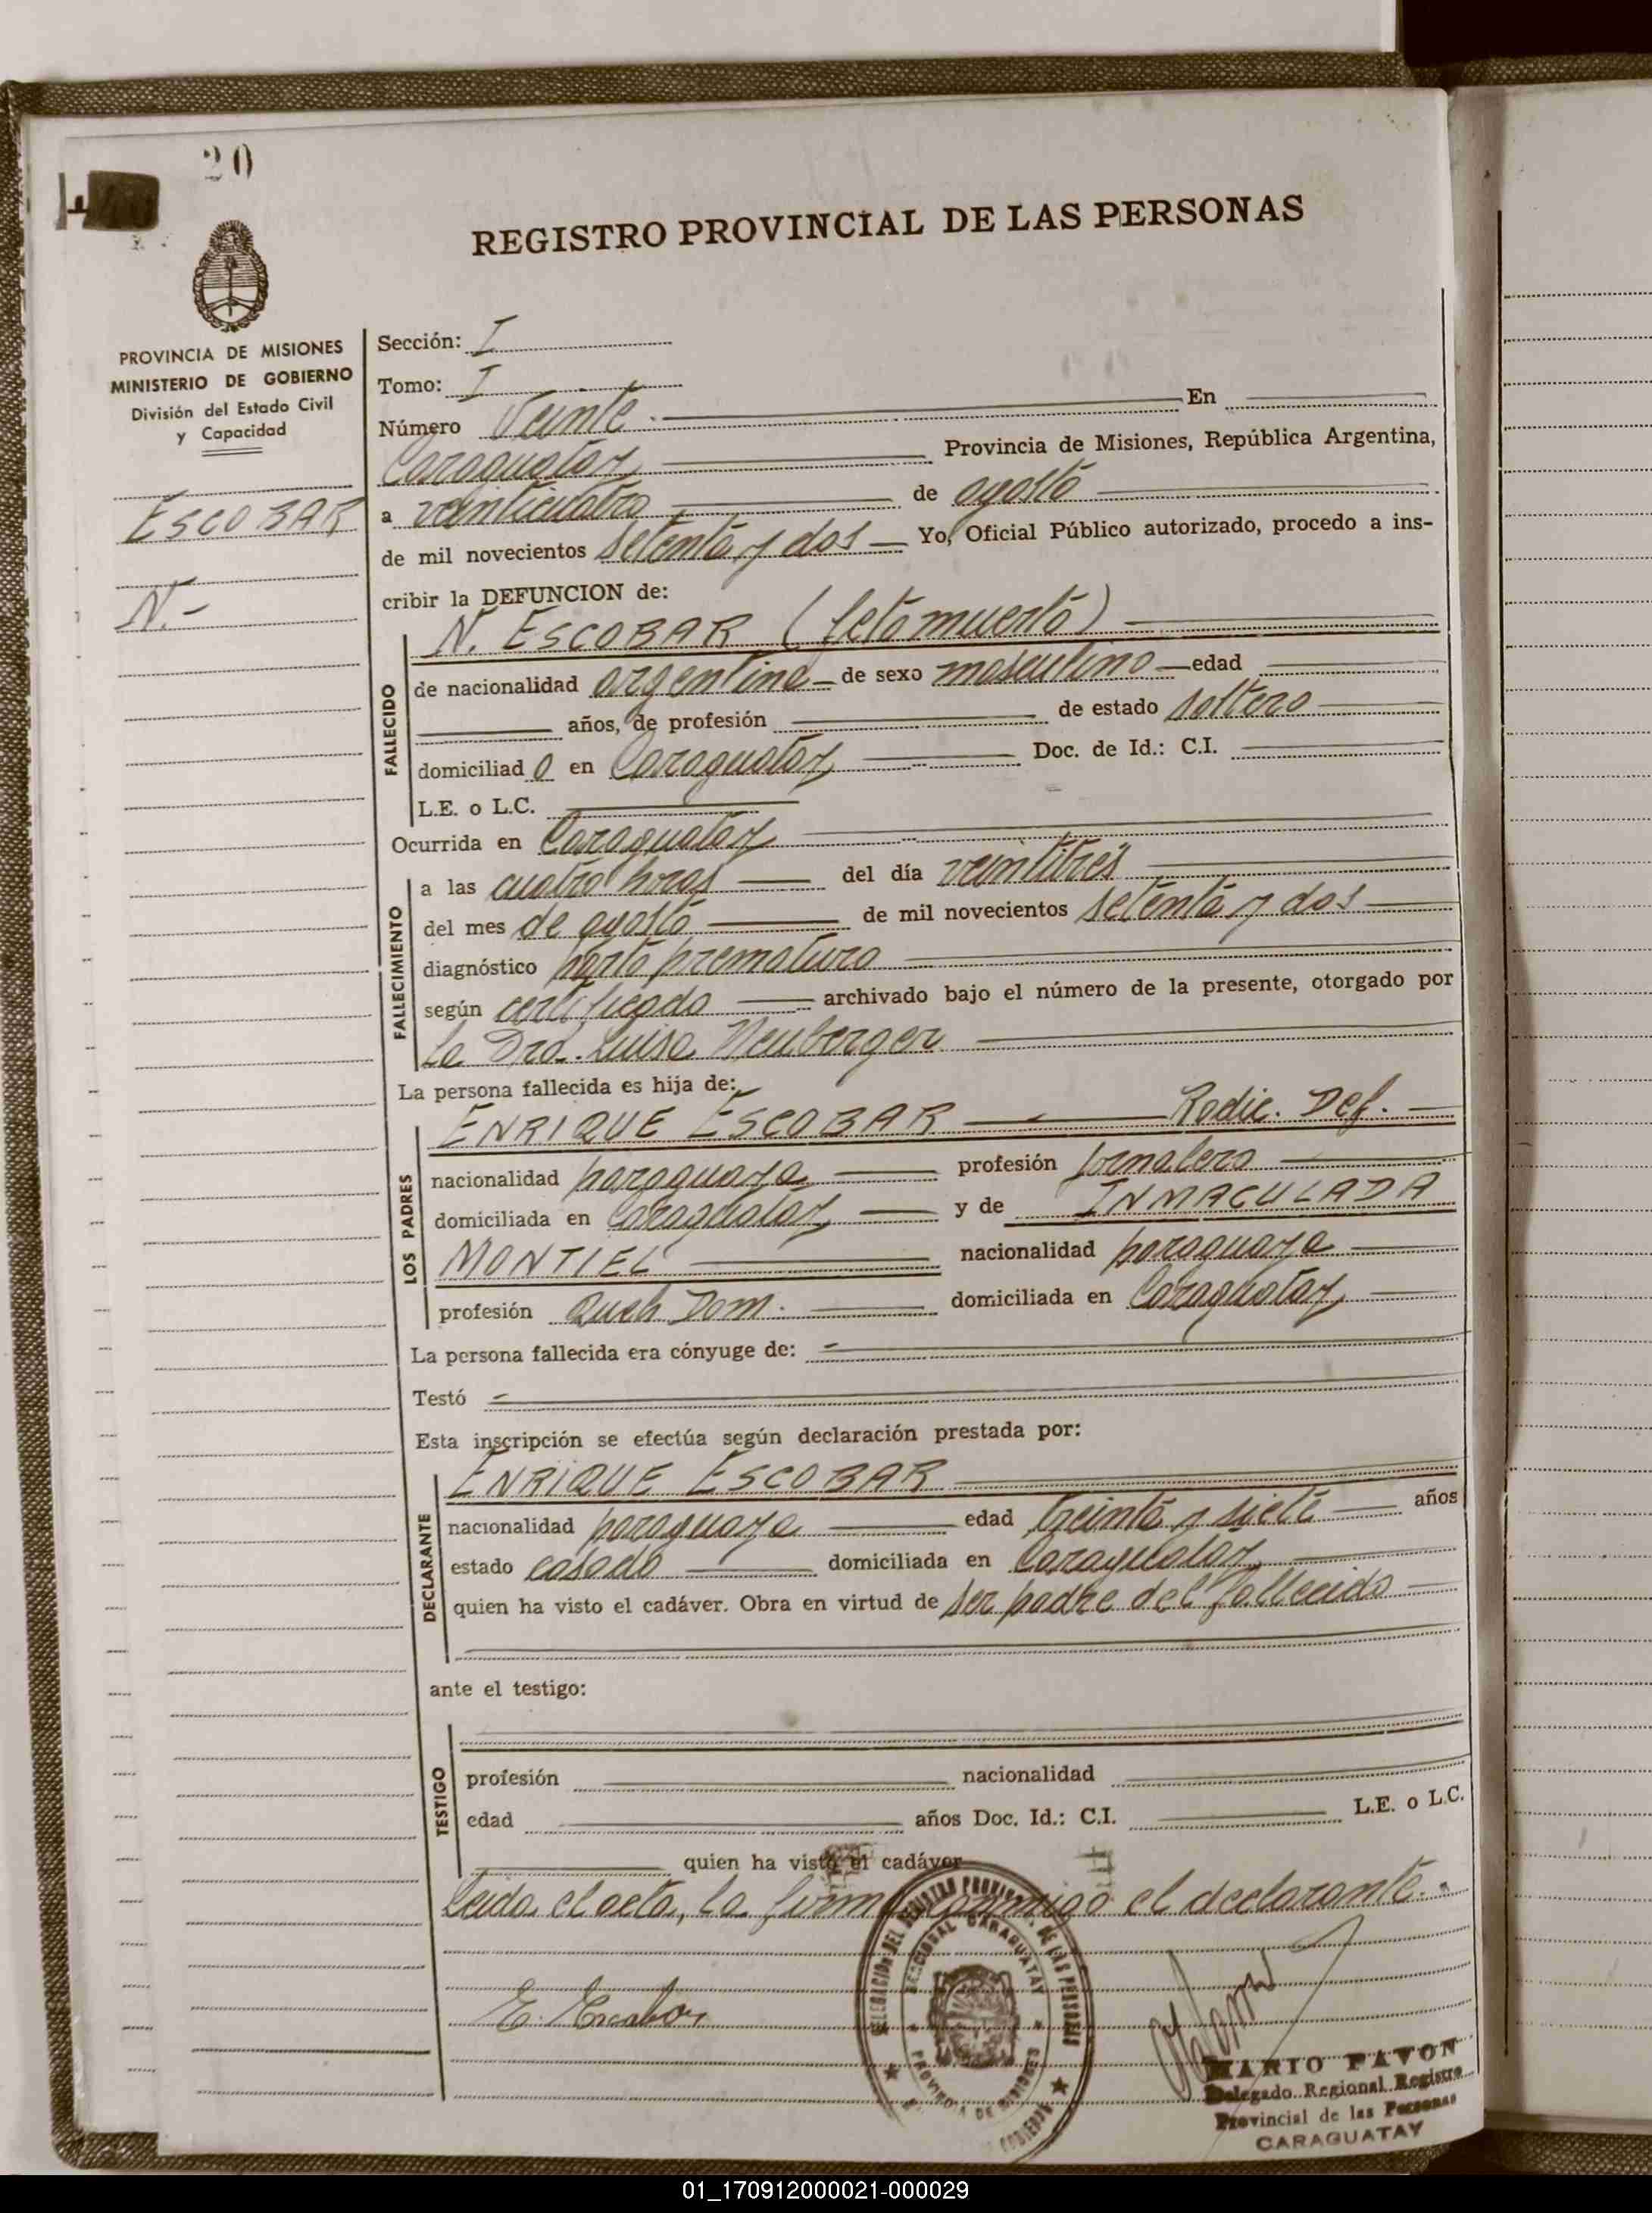 20
REGISTRO PROVINCIAL DE LAS PERSONAS
PROVINCIA DE MISIONES
MINISTERIO DE GOBIERNO
División del Estado Civil
y Capacidad
ESCOBAR
N.-
Sección: I
Tomo: I
Número Veinte.- En
Caraguatay Provincia de Misiones, República Argentina,
a veinticuatro de agosto
de mil novecientos setenta y dos Yo, Oficial Público autorizado, procedo a ins-
cribir la DEFUNCION de:
N. ESCOBAR (feto muerto)
FALLECIDO
de nacionalidad argentina de sexo masculino edad
años, de profesión de estado soltero
domiciliado en Caraguatay Doc. de Id.: C.I.
L.E. o L.C.
Ocurrida en Caraguatay
FALLECIMIENTO
a las cuatro horas del día veintitrés
del mes de agosto de mil novecientos setenta y dos
diagnóstico parto prematuro
según certificado archivado bajo el número de la presente, otorgado por
la Dra. Luisa Neuberger
La persona fallecida es hija de:
LOS PADRES
ENRIQUE ESCOBAR Radic. Def.
nacionalidad paraguaya profesión jornalero
domiciliada en Caraguatay y de INMACULADA
MONTIEL nacionalidad paraguaya
profesión Queh. Dom. domiciliada en Caraguatay
La persona fallecida era cónyuge de: -
Testó -
Esta inscripción se efectúa según declaración prestada por:
DECLARANTE
ENRIQUE ESCOBAR
nacionalidad paraguaya edad treinta y siete años
estado casado domiciliada en Caraguatay
quien ha visto el cadáver. Obra en virtud de ser padre del fallecido
ante el testigo:
TESTIGO
profesión nacionalidad
edad años Doc. Id.: C.I. L.E. o L.C.
quien ha visto el cadáver
Leida el acta, la firma conmigo el declarante.-
E. Escobar
DELEGACION DEL REGISTRO PROVINCIAL DE LAS PERSONAS
CARAGUATAY
PROVINCIA DE MISIONES
MARIO PAVON
Delegado Regional Registro
Provincial de las Personas
CARAGUATAY
01_170912000021-000029